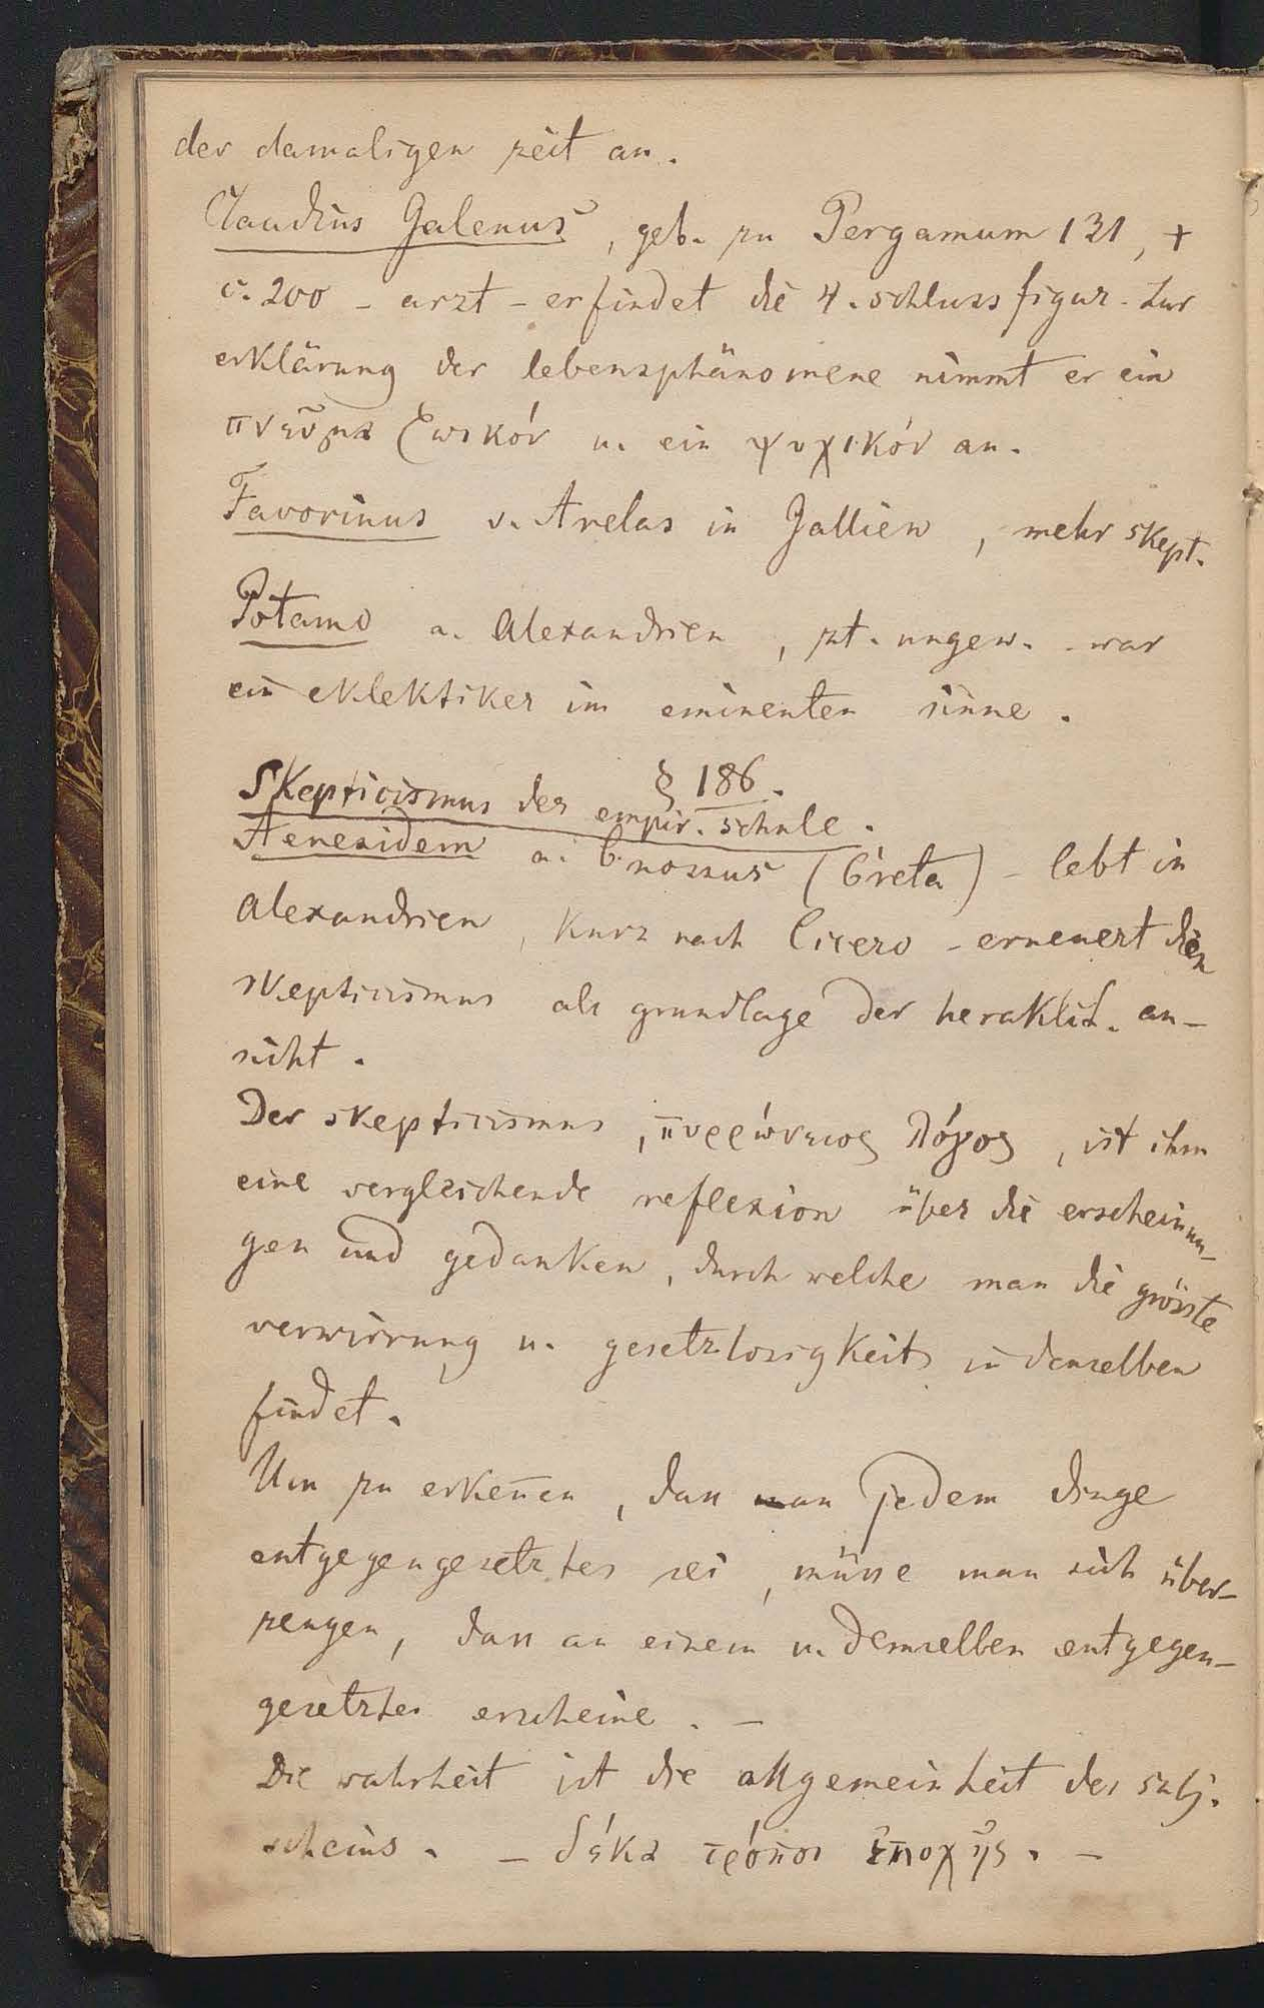 der damaligen zeit an.
Claudius Galenus, geb. zu Pergamum 131, +
c. 200 - arzt - erfindet die 4. schlussfigur. Zur
erklärung der lebensphänomene nimmt er ein
πνεῦμα ζωικόν u. ein ψυχικόν an.
Favorinus v. Arelas in Gallien, mehr skept.
Potamo a. Alexandrien, zt. ungew. - war
ein eklektiker im eminenten sinne.
§ 186.
Skepticismus der empir. schule.
Aenesidem a. Cnossus (Creta) - lebt in
Alexandrien, kurz nach Cicero - erneuert den
skepticismus als grundlage der heraklit. an-
sicht.
Der skepticismus, πυρρώνειος λόγος, ist ihm
eine vergleichende reflexion über die erscheinun-
gen und gedanken, durch welche man die grösste
verwirrung u. gesetzlosigkeit in denselben
findet.
Um zu erkennen, dass an jedem dinge
entgegengesetztes sei, müsse man sich über-
zeugen, dass an einem u. demselben entgegen-
gesetztes erscheine. -
Die wahrheit ist die allgemeinheit des subj.
scheins. - δέκα τρόποι ἐποχῆς. -